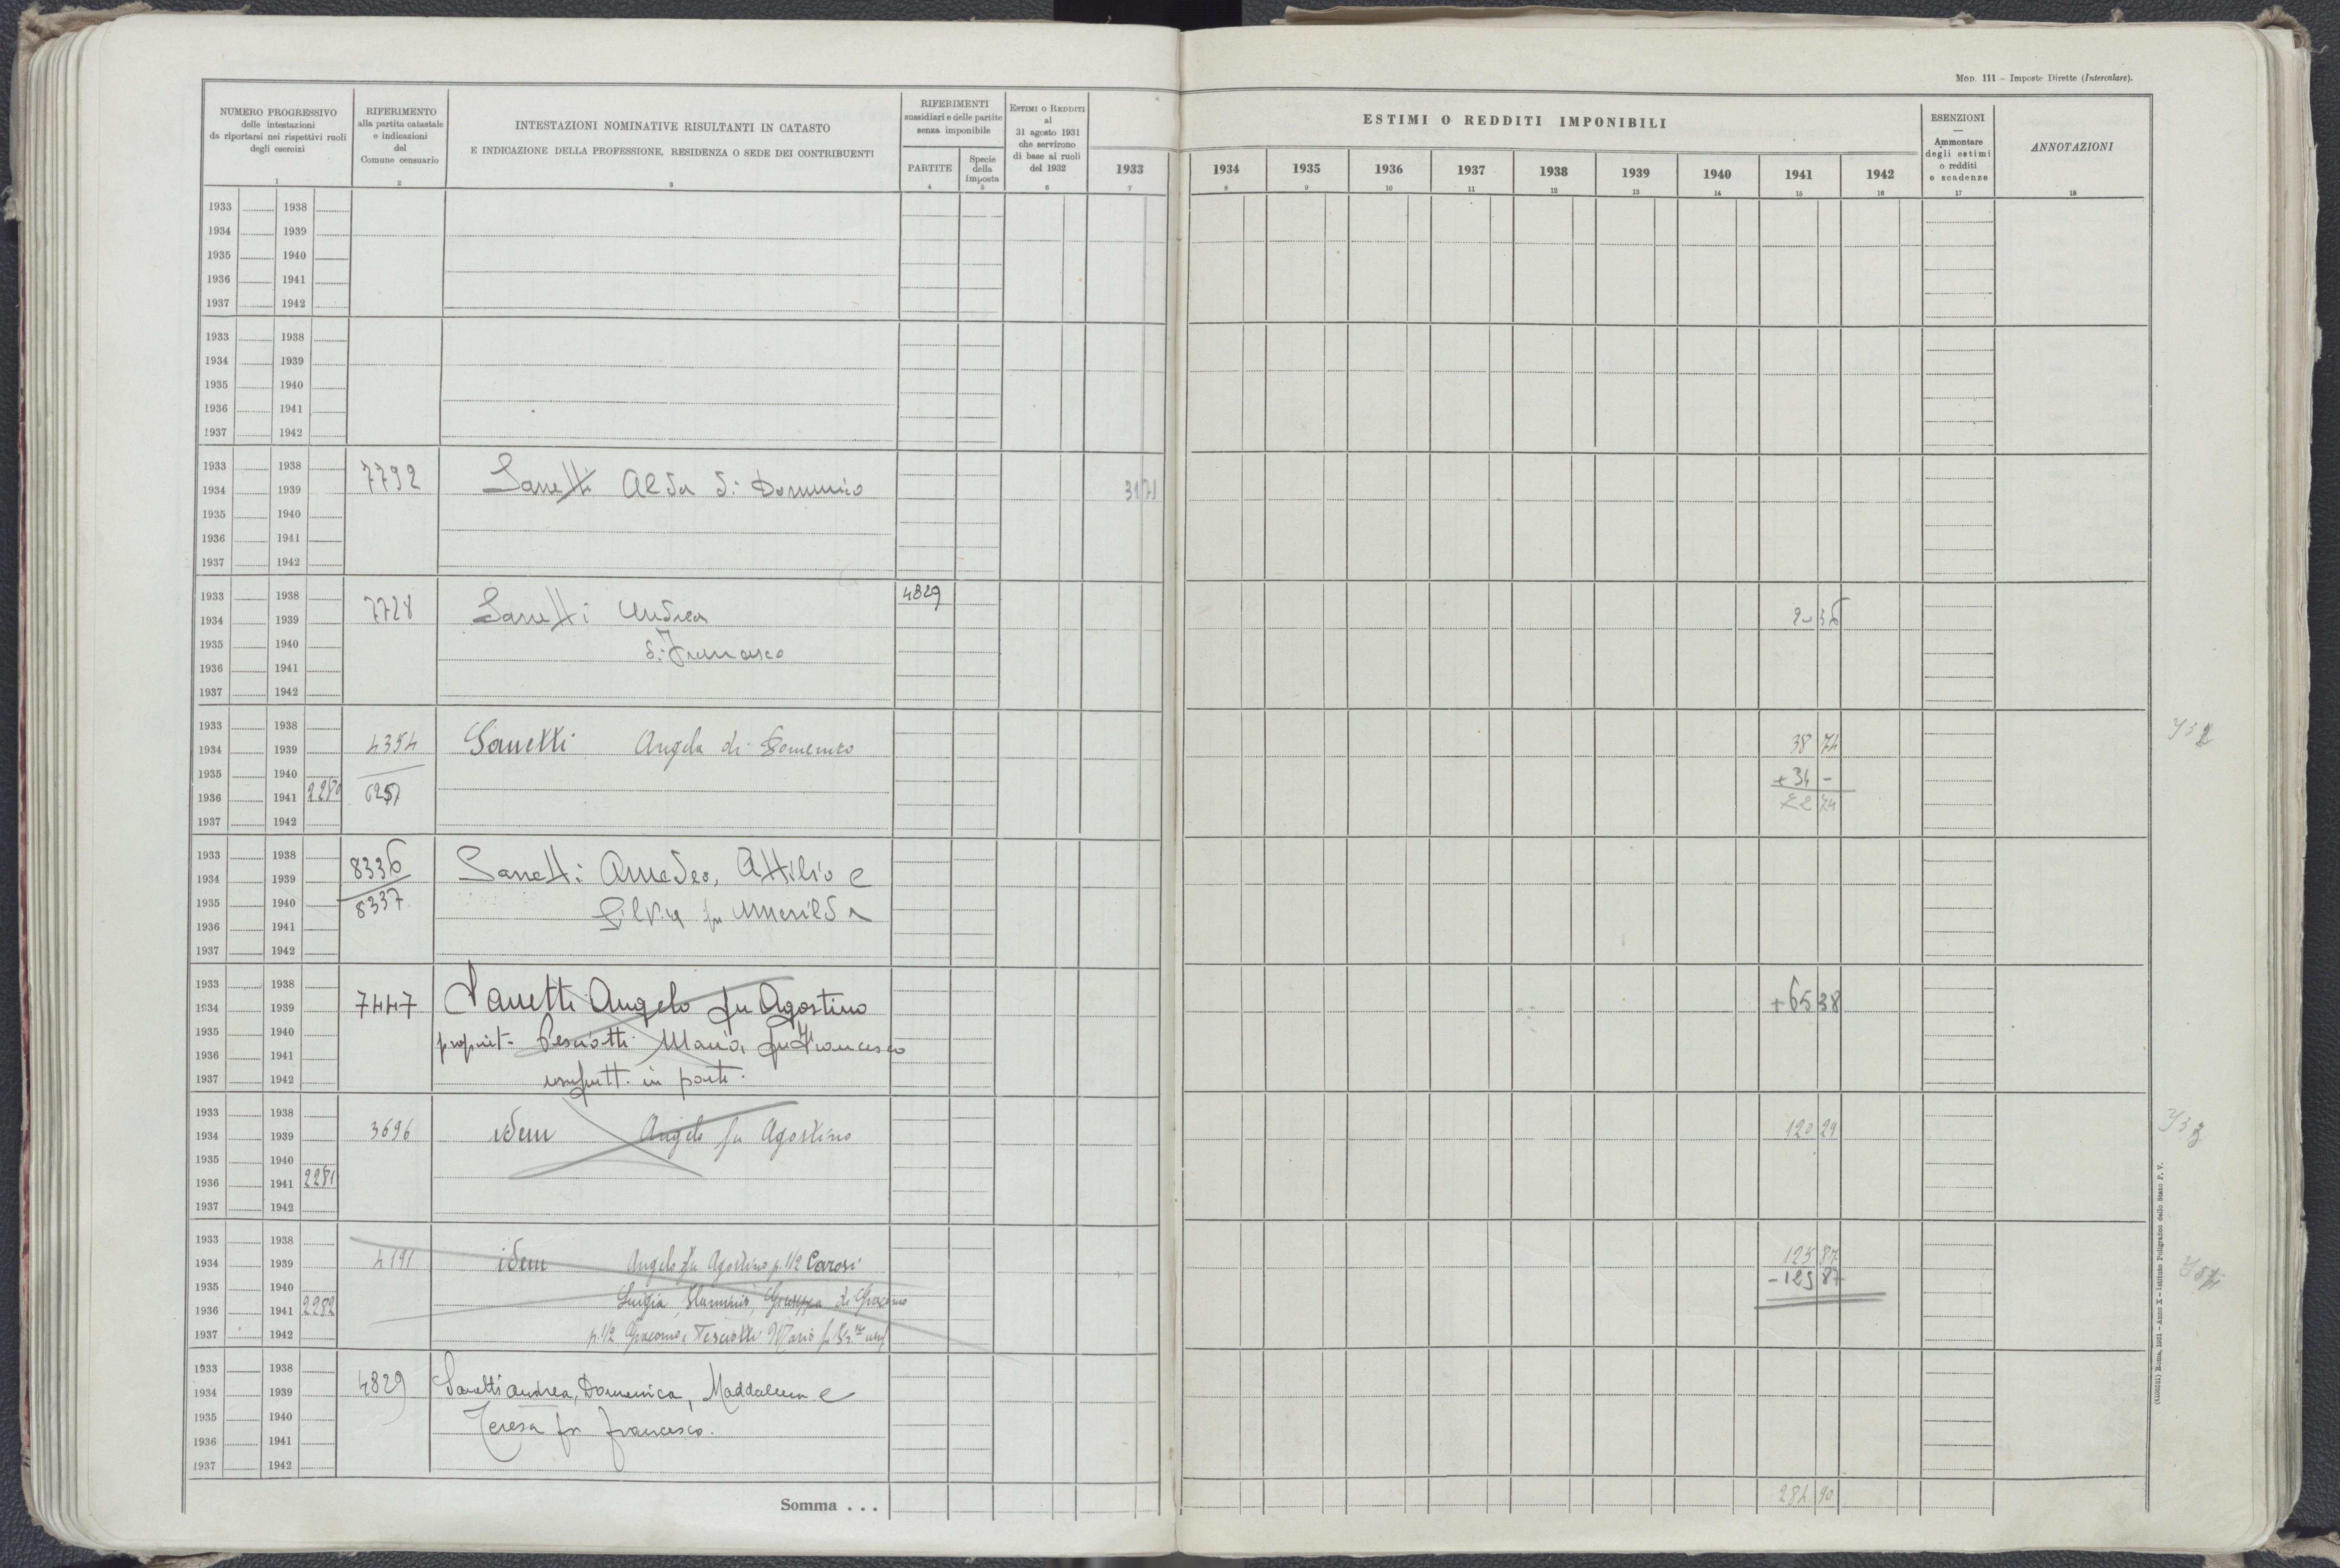 MOD. 111 - Imposte Dirette (Intercalare).
NUMERO PROGRESSIVO
delle intestazioni
da riportarsi nei rispettivi ruoli
degli esercizi
RIFERIMENTO
alla partita catastale
e indicazioni
del
Comune censuario
INTESTAZIONI NOMINATIVE RISULTANTI IN CATASTO
E INDICAZIONE DELLA PROFESSIONE, RESIDENZA O SEDE DEI CONTRIBUENTI
RIFERIMENTI
sussidiari e delle partite
senza imponibile
PARTITE
Specie
della
imposta
ESTIMI O REDDITI
al
31 agosto 1931
che servirono
di base ai ruoli
del 1932
ESTIMI O REDDITI IMPONIBILI
1933 1934 1935 1936 1937 1938 1939 1940 1941 1942
ESENZIONI
Ammontare
degli estimi
o redditi
e scadenze
ANNOTAZIONI
1 2 3 4 5 6 7 8 9 10 11 12 13 14 15 16 17 18
1933 1938
1934 1939
1935 1940
1936 1941
1937 1942
1933 1938
1934 1939
1935 1940
1936 1941
1937 1942
1933 1938
1934 1939 7792 Sanetti Alda di Domenico 31 71
1935 1940
1936 1941
1937 1942
1933 1938 4829
1934 1939 7728 Sanetti Andrea
1935 1940 di Francesco
1936 1941
1937 1942
1933 1938
1934 1939 4354 Sanetti Angela di Domenico 38 74
1935 1940 + 34 -
1936 1941 2280 6257 72 74
1937 1942
1933 1938 8336
1934 1939 Sanetti Amedeo, Attilio e
1935 1940 8337 Silvia fu
1936 1941
1937 1942
1933 1938
1934 1939 7447 Sanetti Angelo fu Agostino + 65 38
1935 1940 propriet. Maria fu Francesco
1936 1941
1937 1942 usufrutt. in parte.
1933 1938
1934 1939 3696 idem Angelo fu Agostino 120 29
1935 1940
1936 1941 2281
1937 1942
1933 1938
1934 1939 4191 idem Angelo fu Agostino p. 1/2 Carosi 125 87
1935 1940 - 125 87
1936 1941 2282 Luigia, Giuseppa di Giacomo
1937 1942 p. 1/2 Giacomo
1933 1938
1934 1939 4829 Sanetti Andrea, Domenica, Maddalena e
1935 1940 Teresa fu Francesco.
1936 1941
1937 1942
Somma . . . 284 90
Roma, 1931 - Anno X - Istituto Poligrafico dello Stato P. V.